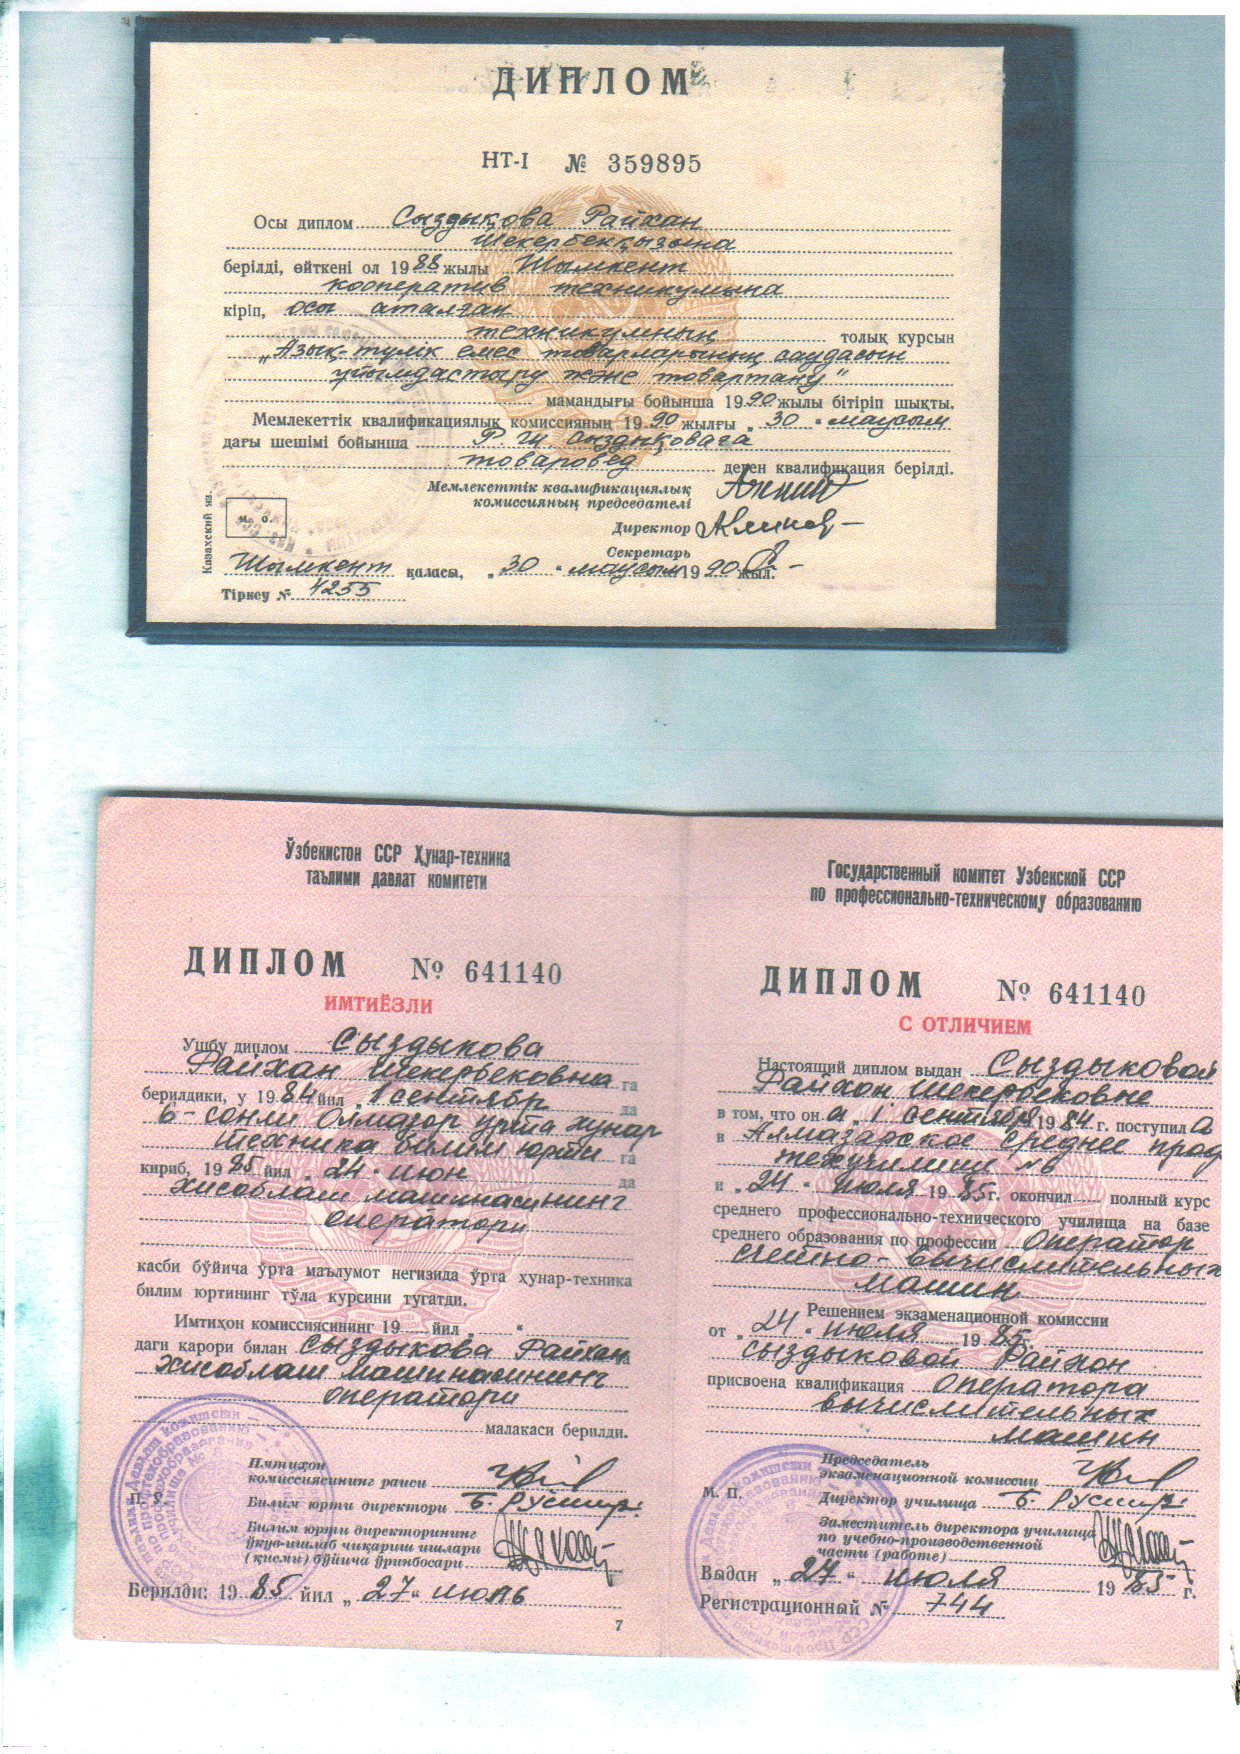 ДИПЛОМ
НТ-I № 359895
Осы диплом Сыздықова Райхан
Шекербекқызына
берілді, өйткені ол 1988 жылы Шымкент
кооператив техникумына
кіріп, осы аталған
техникумның толық курсын
„Азық-түлік емес товарларының саудасын
ұйымдастыру және товартану"
мамандығы бойынша 1990 жылы бітіріп шықты.
Мемлекеттік квалификациялық комиссияның 1990 жылғы „30" маусым
дағы шешімі бойынша Р. Ш. Сыздықоваға
товаровед деген квалификация берілді.
Мемлекеттік квалификациялық
комиссияның председателі
Директор
Секретарь
Казахский яз.
м. о.
Шымкент қаласы, „30" маусым 1990 жыл.
Тіркеу № 4255
Ўзбекистон ССР Ҳунар-техника
таълими давлат комитети
ДИПЛОМ № 641140
ИМТИЁЗЛИ
Ушбу диплом Сыздыкова
Райхан Шекербековна га
берилдики, у 1984 йил „1 сентябр да
6-сонли Олмазор ўрта хунар
техника билим юрти га
кириб, 1985 йил „24" июн да
хисоблаш машинасининг
оператори
касби бўйича ўрта маълумот негизида ўрта ҳунар-техника
билим юртининг тўла курсини тугатди.
Имтиҳон комиссиясининг 19 йил „ "
даги карори билан Сыздыкова Райхан га
хисоблаш машинасининг
оператори
малакаси берилди.
Имтиҳон
комиссиясининг раиси
Билим юрти директори Б. Русмир
Билим юрти директорининг
ўқув-ишлаб чиқариш ишлари
(қисми) бўйича ўринбосари
Берилди: 1985 йил „27" июль
7
Государственный комитет Узбекской ССР
по профессионально-техническому образованию
ДИПЛОМ № 641140
С ОТЛИЧИЕМ
Настоящий диплом выдан Сыздыковой
Райхон Шекербековне
в том, что он а „1" сентября 1984 г. поступил а
в Алмазарское среднее проф
техучилище №6
и „24" июля 1985 г. окончил полный курс
среднего профессионально-технического училища на базе
среднего образования по профессии Оператор
счетно-вычислительных
машин
Решением экзаменационной комиссии
от „24" июля 1985
Сыздыковой Райхон
присвоена квалификация оператора
вычислительных
машин
Председатель
экзаменационной комиссии
М. П.
Директор училища Б. Русмир
Заместитель директора училища
по учебно-производственной
части (работе)
Выдан „27" июля 1985 г.
Регистрационный № 744